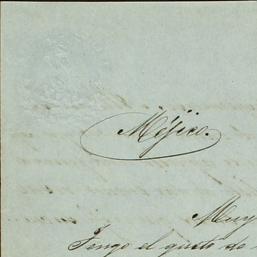 Méjico.
Muy
Tengo el gusto de